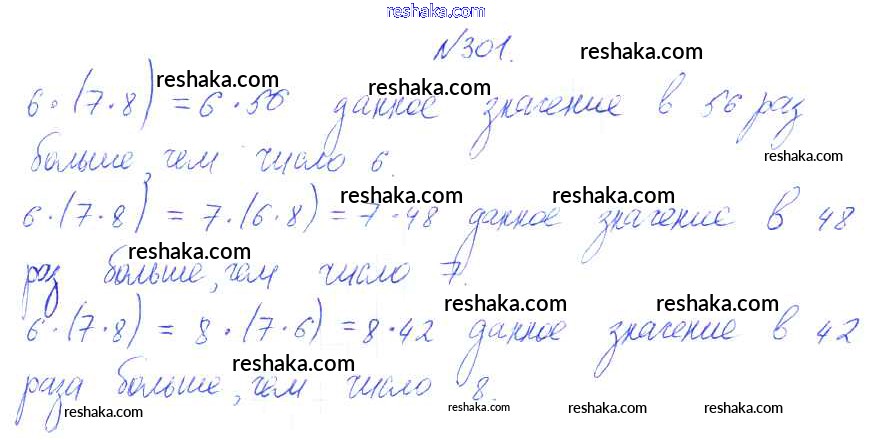 reshaka.com
№301. reshaka.com
reshaka.com reshaka.com
6·(7·8) = 6·56 данное значение в 56 раз
больше, чем число 6. reshaka.com
reshaka.com reshaka.com
6·(7·8) = 7·(6·8) = 7·48 данное значение в 48
reshaka.com
раз больше, чем число 7.
reshaka.com reshaka.com
6·(7·8) = 8·(7·6) = 8·42 данное значение в 42
reshaka.com
раза больше, чем число 8.
reshaka.com reshaka.com reshaka.com reshaka.com